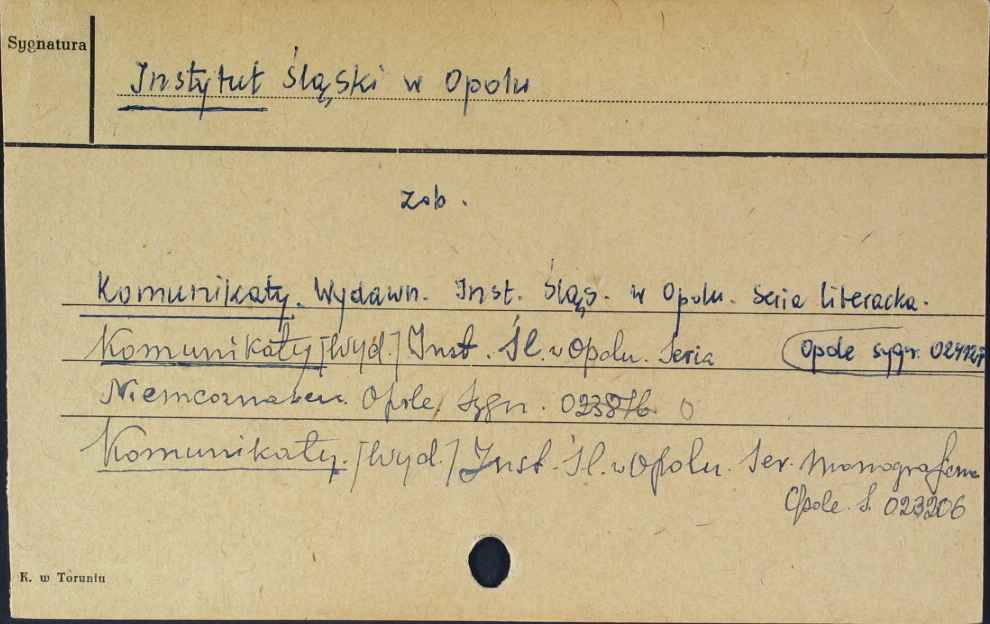 Sygnatura
Instytut Śląski w Opolu
zob.
Komunikaty. Wydawn. Inst. Śląs. w Opolu. Seria literacka.
Opole sygn.
Komunikaty [Wyd.] Inst. Śl. w Opolu. Seria
Niemcoznawcza. Opole, Sygn.
Komunikaty. [Wyd.] Inst. Śl. w Opolu. Ser. Monograficzna
Opole. S. 023206
K. w Toruniu